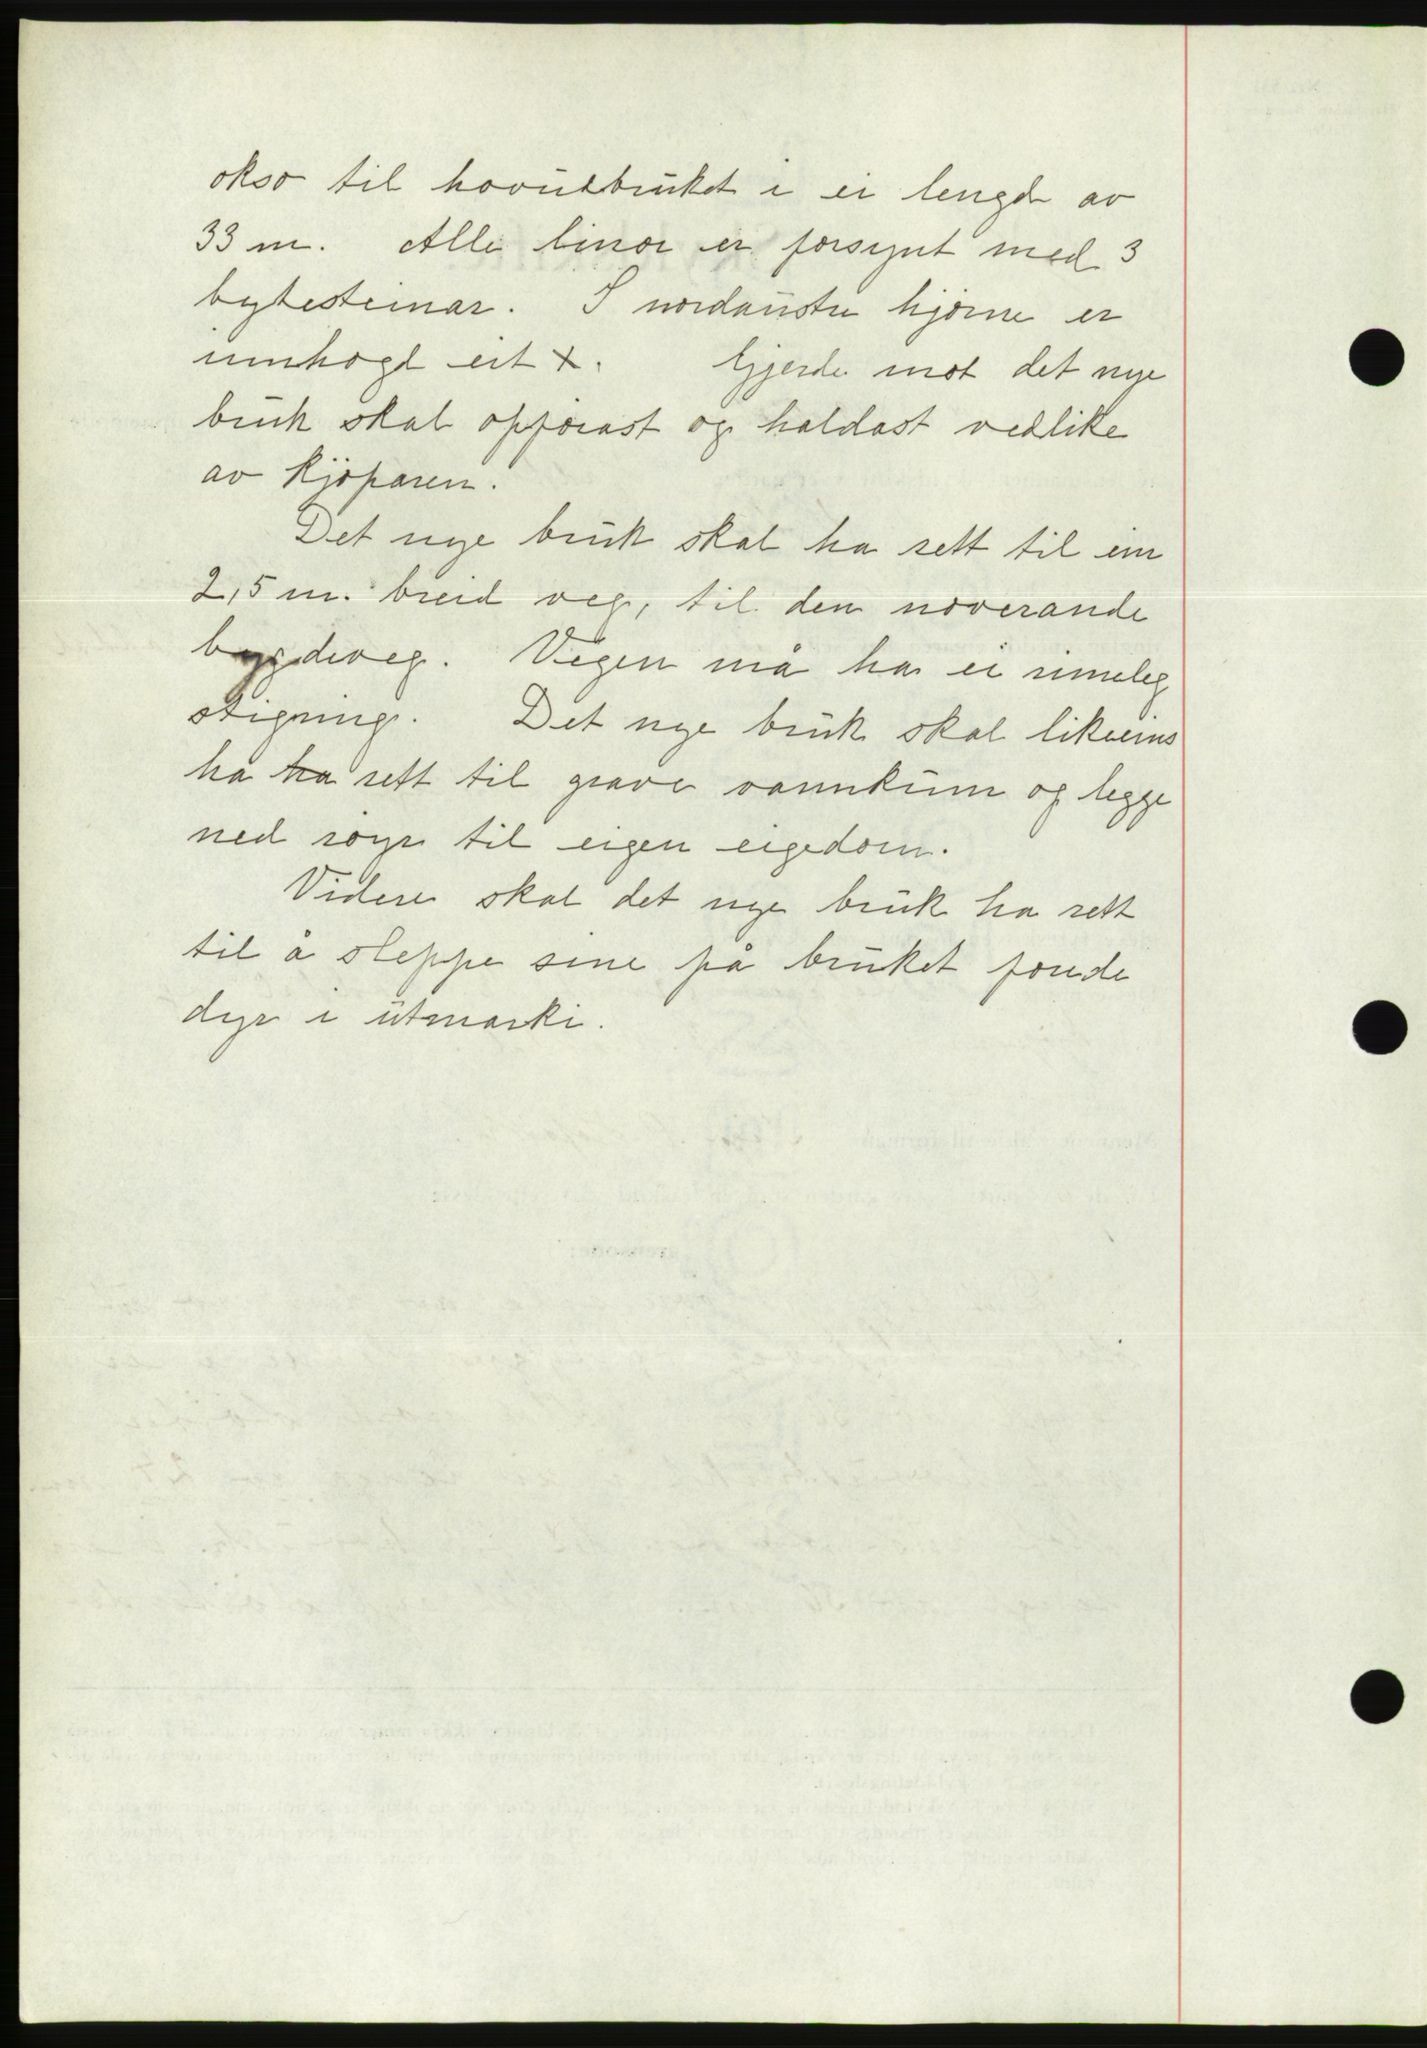 okso til hovudbruket i ei lengd av
33 m. Alle linor er forsynt med 3
bytesteinar. I nordaustre hjørne er
innhogd eit x. Gjerde mot det nye
bruk skal oppførast og haldast vedlike
av kjøparen.
Det nye bruk skal ha rett til ein
2,5 m. breid veg, til den noverande
bygdeveg. Vegen må ha ei rimeleg
stigning. Det nye bruk skal likeeins
ha ha rett til grave vannkum og legge
ned røyr til eigen eigedom.
Videre skal det nye bruk ha rett
til å sleppe sine på bruket forde
dyr i utmarki.